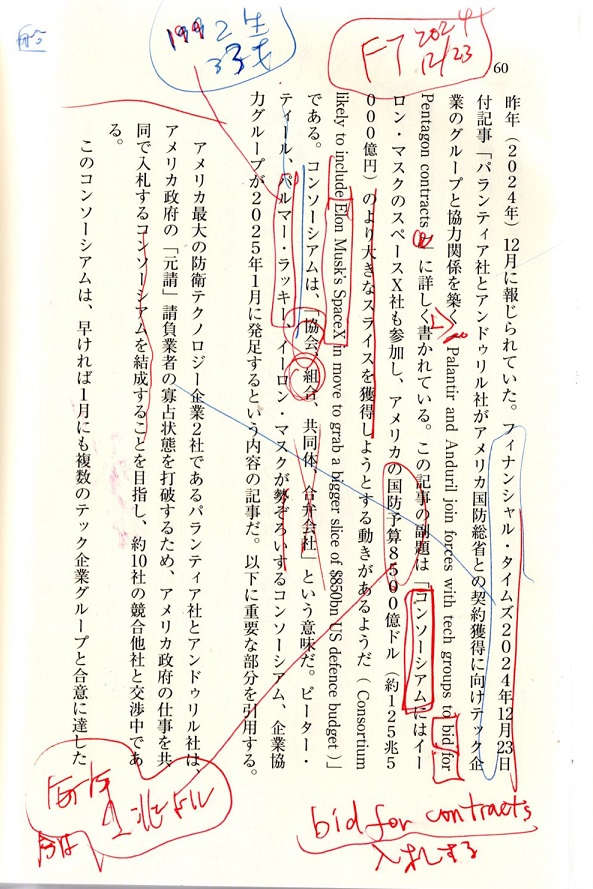 60
FT 2024
12/23
1992生
33才
昨年（2024年）12月に報じられていた。フィナンシャル・タイムズ2024年12月23日
付記事「パランティア社とアンドゥリル社がアメリカ国防総省との契約獲得に向けテック企
業のグループと協力関係を築く Palantir and Anduril join forces with tech groups to bid for
Pentagon contracts」に詳しく書かれている。この記事の副題は「コンソーシアムにはイー
ロン・マスクのスペースX社も参加し、アメリカの国防予算8500億ドル（約125兆5
000億円）のより大きなスライスを獲得しようとする動きがあるようだ（Consortium
likely to include Elon Musk's SpaceX in move to grab a bigger slice of $850bn US defence budget）」
である。コンソーシアムは、「協会、組合、共同体、合弁会社」という意味だ。ピーター・
ティール、パルマー・ラッキー、イーロン・マスクが勢ぞろいするコンソーシアム、企業協
力グループが2025年1月に発足するという内容の記事だ。以下に重要な部分を引用する。
アメリカ最大の防衛テクノロジー企業2社であるパランティア社とアンドゥリル社は、
アメリカ政府の「元請」請負業者の寡占状態を打破するため、アメリカ政府の仕事を共
同で入札するコンソーシアムを結成することを目指し、約10社の競合他社と交渉中であ
る。
このコンソーシアムは、早ければ1月にも複数のテック企業グループと合意に達した
bid for contracts
入札する
今は
1兆ドル